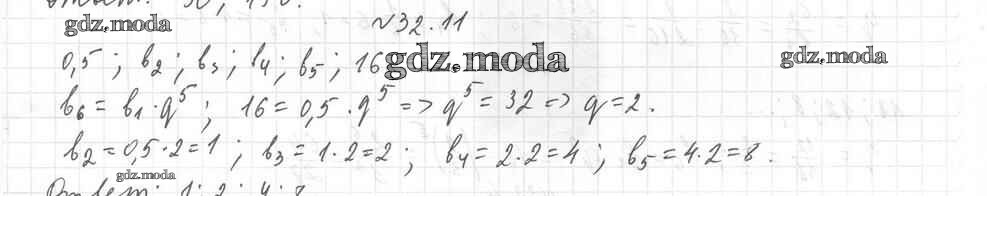 Ответ: 50, 150.
№32.11
gdz.moda
0,5; b₂; b₃; b₄; b₅; 16
gdz.moda
gdz.moda
b₆ = b₁·q⁵; 16 = 0,5·q⁵ => q⁵ = 32 => q = 2.
b₂ = 0,5·2=1; b₃ = 1·2=2; b₄ = 2·2=4; b₅ = 4·2=8.
gdz.moda
Ответ: 1; 2; 4; 8